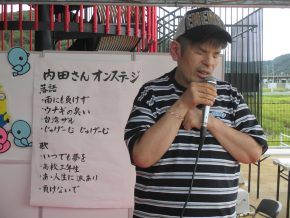 内田さんオンステージ
落語
・雨にも負けず
・ウナギの臭い
・台湾サル
・じゅげーむ じゅげーむ
歌
・いつでも夢を
・高校三年生
・あゝ人生に涙あり
・負けないで